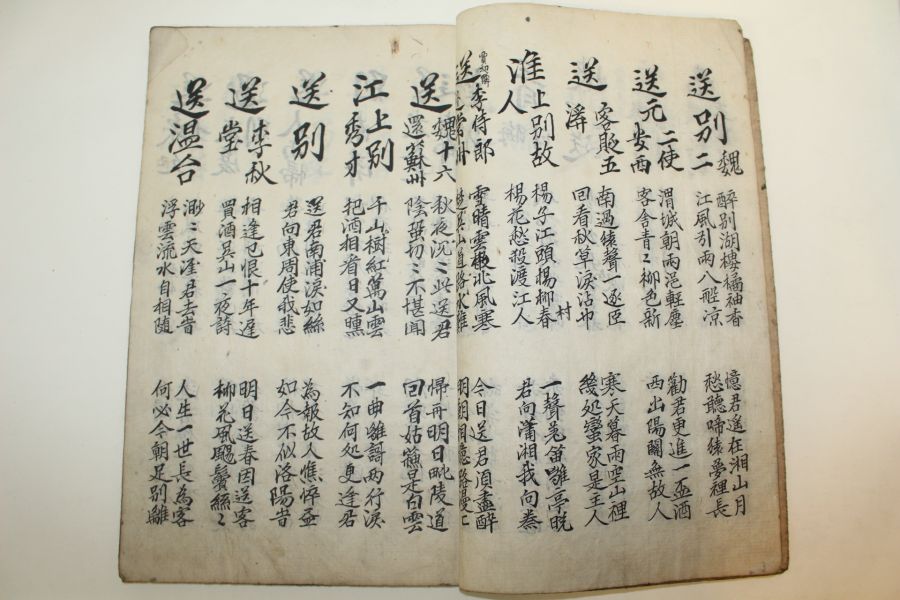 送別二 魏
醉別湖樓橘袖香
江風引雨入船凉
憶君遙在湘山月
愁聽啼猿夢裡長
送元二使安西
渭城朝雨浥輕塵
客舍青〻柳色新
勸君更進一盃酒
西出陽關無故人
送客貶五溪
南過猿聲一逐臣
回看秋草淚沾巾
村
寒天暮雨空山裡
幾処蠻家是主人
淮上別故人
楊子江頭楊柳春
楊花愁殺渡江人
一聲羌笛離亭晩
君向瀟湘我向秦
送李侍郎
雪晴雲散北風寒
吳山道路水難
今日送君須盡醉
明朝相憶路漫〻
送魏十六還蘇州
秋夜沉〻此送君
陰蛩切〻不堪聞
帰舟明日毗陵道
回首姑蘇是白雲
江上別秀才
千山樹紅萬山雲
把酒相看日又曛
一曲離謌兩行淚
不知何処更逢君
送別
送君南浦淚如絲
君向東周使我悲
為報故人憔悴盃
如今不似洛陽昔
送李秋堂
相逢已恨十年遲
買酒吳山一夜詩
明日送春因送客
柳花風颺鬢絲〻
送温台
渺〻天涯君去昔
浮雲流水自相隨
人生一世長為客
何必今朝足別離